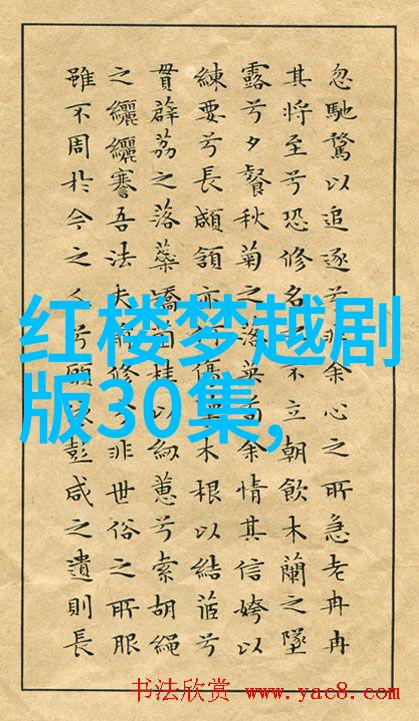 忽馳騖以追逐兮非余心之所急老冉冉
其將至兮恐修名不立朝飲木蘭之墜
露兮夕餐秋菊之落英苟余情其信姱以
練要兮長顑頷亦何傷木根以結茝兮
貫薜荔之落蘂矯菌桂以紉蕙兮索胡繩
之纚纚謇吾法夫前修兮非世俗之所服
雖不周於今之人兮願依彭咸之遺則長
红楼梦越剧
版30集,
书法欣赏 www.yac8.com